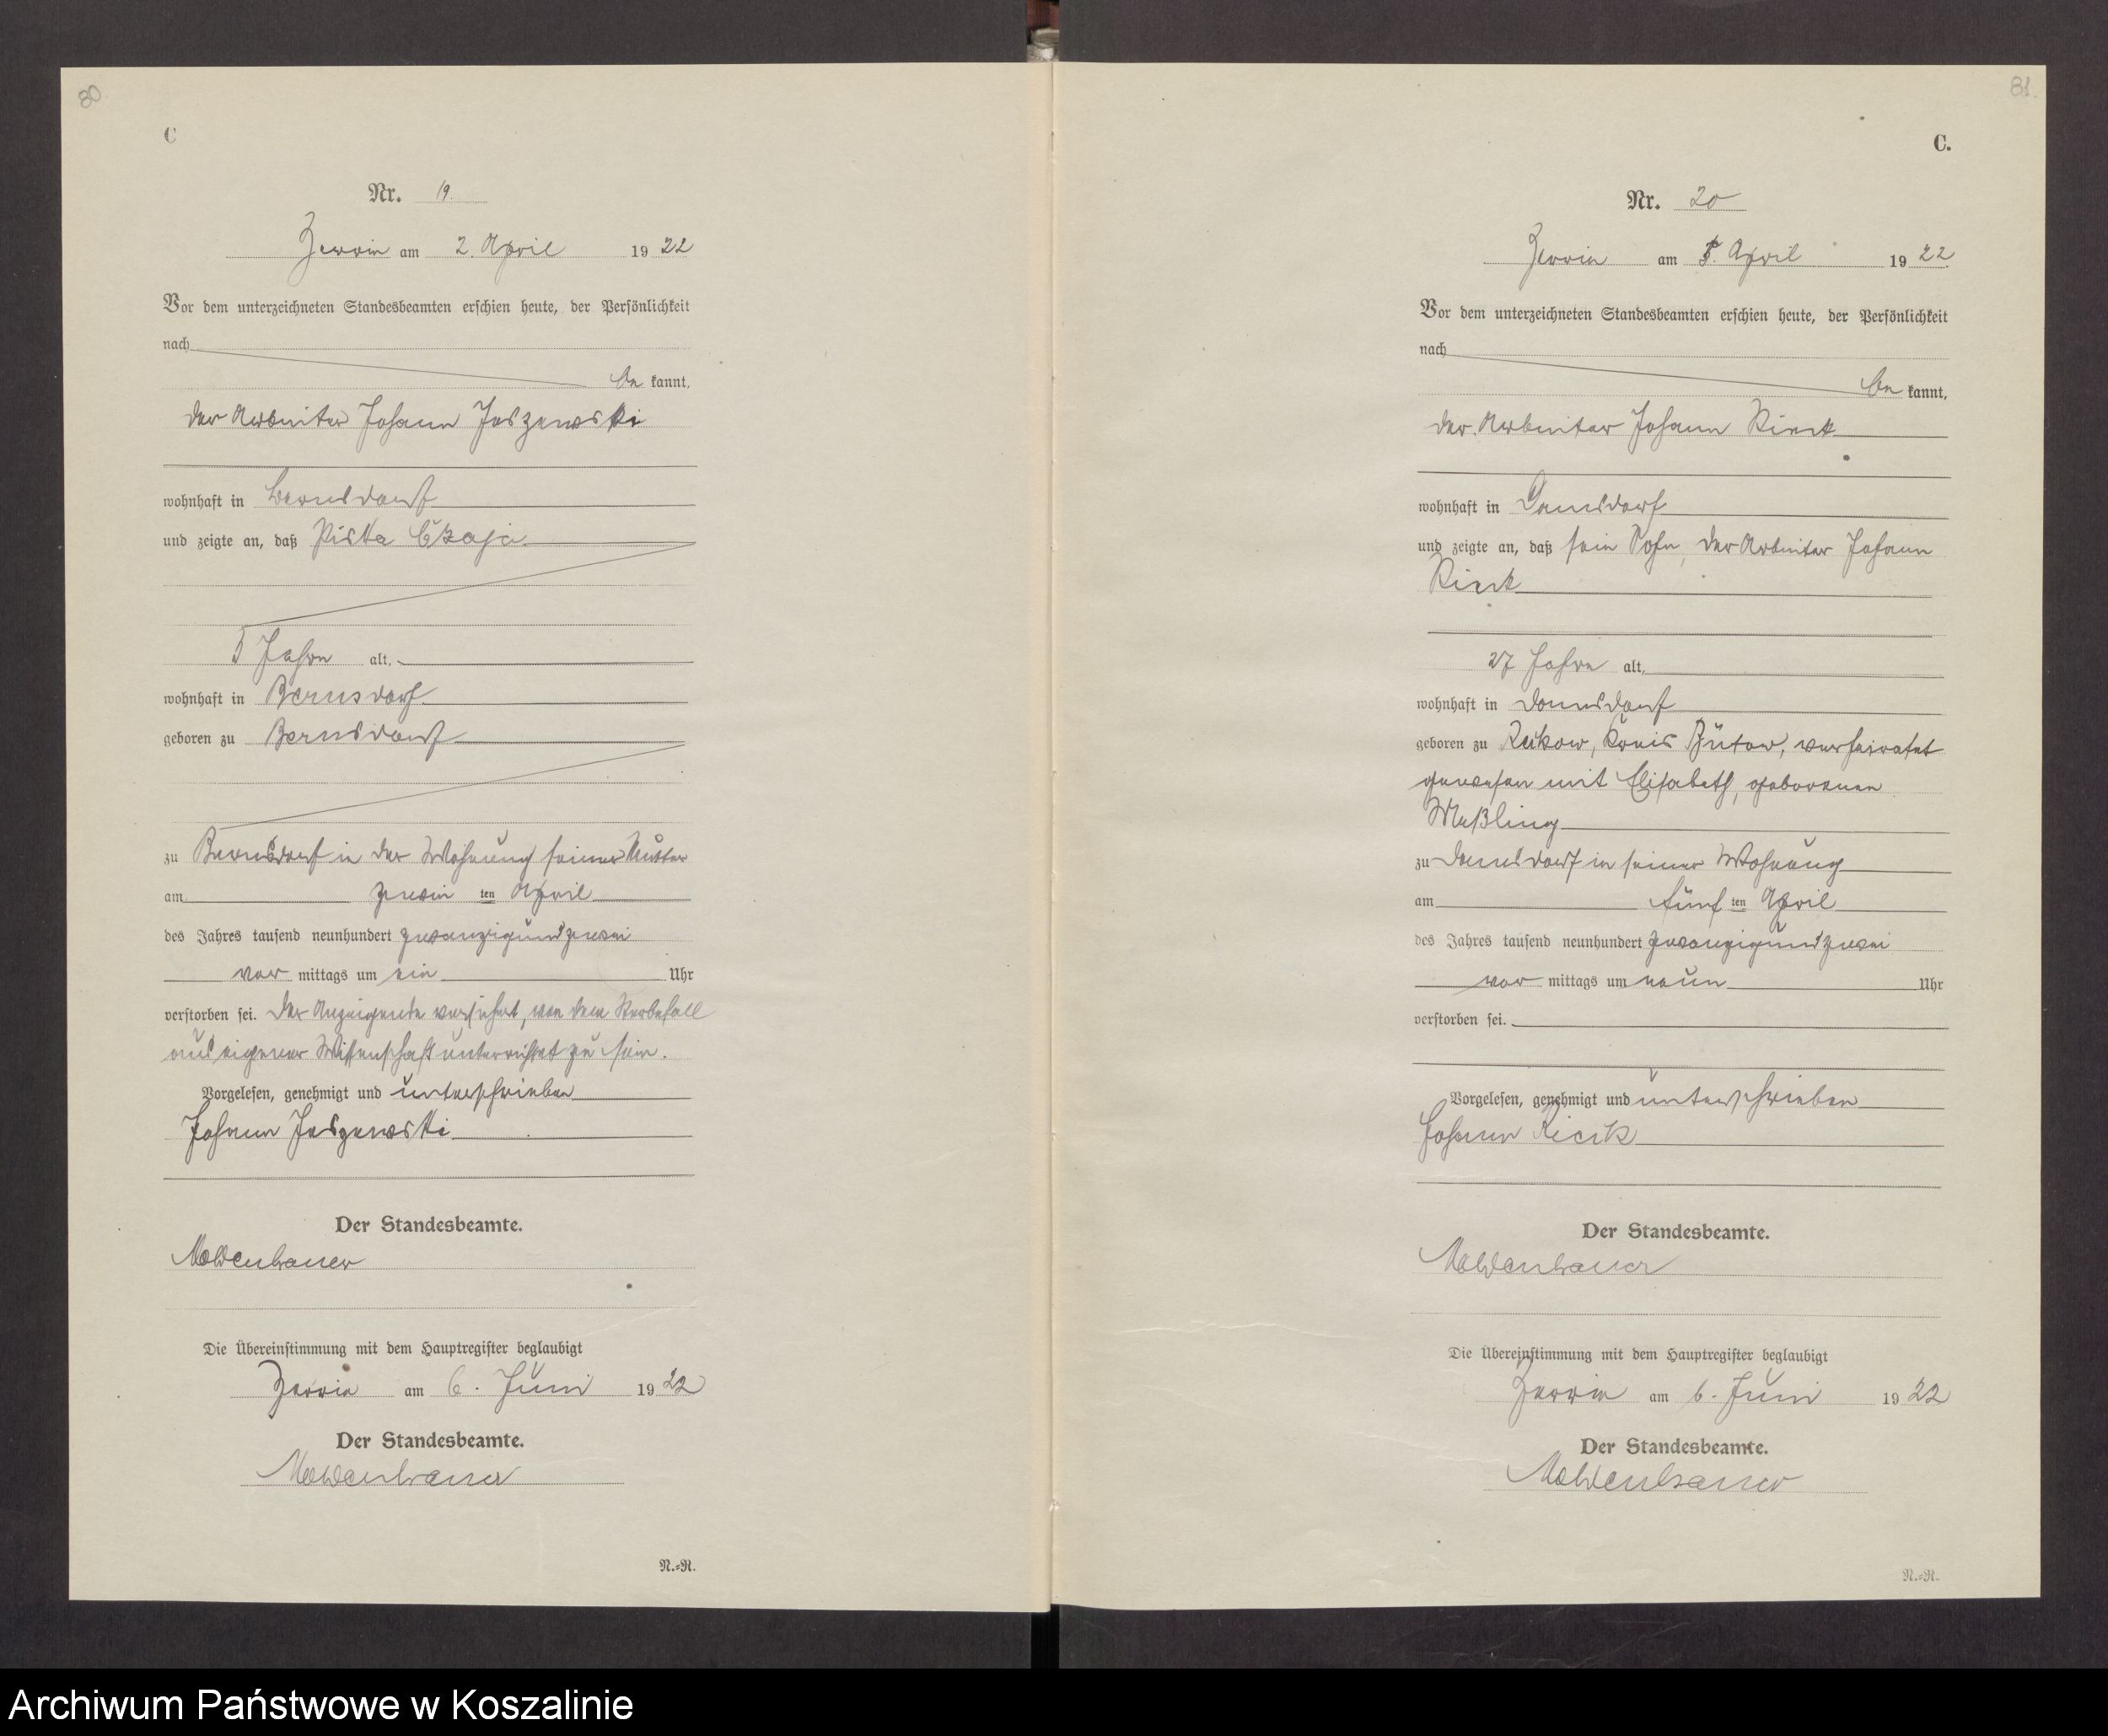 80
C
Nr. 19.
Zerrin am 2. April 1922
Vor dem unterzeichneten Standesbeamten erschien heute, der Persönlichkeit
nach
be kannt,
der Arbeiter Johann Jaszewski
wohnhaft in Bernsdorf
und zeigte an, daß Piska Czaja
5 Jahre alt,
wohnhaft in Bernsdorf
geboren zu Bernsdorf
zu Bernsdorf in der Wohnung seiner Mutter
am zwei ten April
des Jahres tausend neunhundert zwanzigundzwei
vor mittags um ein Uhr
verstorben sei. Der Anzeigende versichert, von dem Sterbefall
aus eigener Wissenschaft unterrichtet zu sein.
Vorgelesen, genehmigt und unterschrieben
Johann Jaszewski
Der Standesbeamte.
Moldenhauer
Die Übereinstimmung mit dem Hauptregister beglaubigt
Zerrin am 6. Juni 1922
Der Standesbeamte.
Moldenhauer
N.=R.
81.
C.
Nr. 20
Zerrin am 5. April 1922
Vor dem unterzeichneten Standesbeamten erschien heute, der Persönlichkeit
nach
be kannt,
der Arbeiter Johann Rieck
wohnhaft in Damsdorf
und zeigte an, daß sein Sohn, der Arbeiter Johann
Rieck
27 Jahre alt,
wohnhaft in Damsdorf
geboren zu Reckow, Kreis Bütow, verheiratet
gewesen mit Elisabeth, geborenen
Meßling
zu Damsdorf in seiner Wohnung
am fünf ten April
des Jahres tausend neunhundert zwanzigundzwei
vor mittags um neun Uhr
verstorben sei.
Vorgelesen, genehmigt und unterschrieben
Johann Rieck
Der Standesbeamte.
Moldenhauer
Die Übereinstimmung mit dem Hauptregister beglaubigt
Zerrin am 6. Juni 1922
Der Standesbeamte.
Moldenhauer
N.=R.
Archiwum Państwowe w Koszalinie